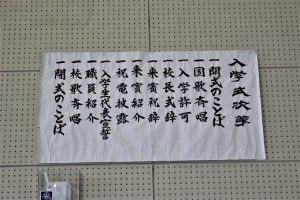 入学式次第
一開式のことば
一国歌斉唱
一入学許可
一校長式辞
一来賓祝辞
一来賓紹介
一祝電披露
一入学生代表宣誓
一職員紹介
一校歌斉唱
一閉式のことば